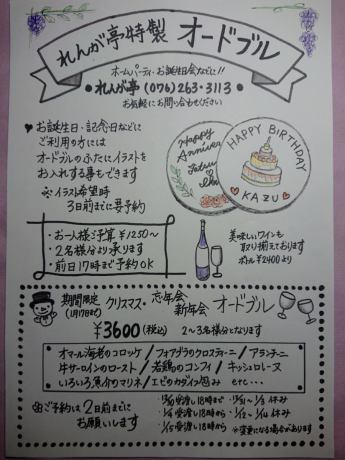 れんが亭特製 オードブル
ホームパーティ・お誕生日会などに!!
• れんが亭 (076)263-3113 •
お気軽にお問い合わせください
♥ お誕生日・記念日などに
ご利用の方には
オードブルのふたにイラストを
お入れする事もできます
※イラスト希望時
3日前までに要予約
Happy
HAPPY BIRTHDAY
KAZU
・お一人様ご予算 ¥1250~
・2名様分より承ります
・前日17時まで予約OK
美味しいワインも
取り揃えております
ボトル ¥2400より
期間限定
(1月17日まで)
クリスマス・忘年会・新年会 オードブル
¥3600(税込) 2~3名様分となります
オマール海老のコロッケ / フォアグラのクロスティーニ / アランチーニ
牛サーロインのロースト / 若鶏のコンフィ / キッシュロレーヌ
いろいろ魚介のマリネ / エビのカダイフ包み etc...
ご予約は2日前までに
お願いします
12/30 受渡し18時まで・12/31~1/3 休み
1/4 受渡し18時から・1/2~1/4 休み
1/5 受渡し18時から ※変更になる場合があります